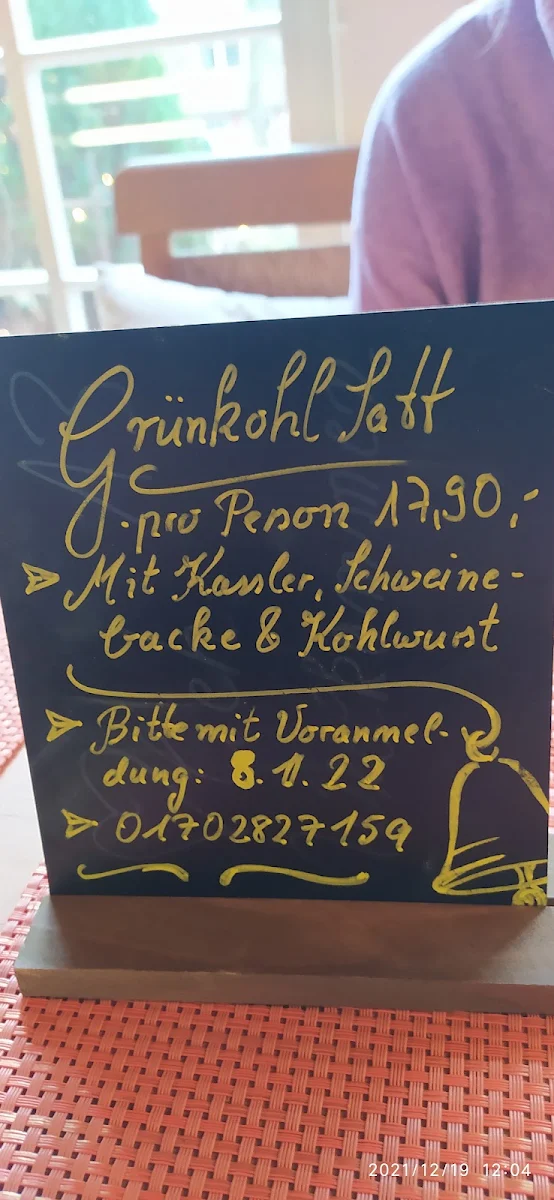 Grünkohl Satt
.pro Person 17,90,-
Mit Kassler, Schweine-
backe & Kohlwurst
Bitte mit Voranmel-
dung: 8.1.22
01702827159
2021/12/19 12:04